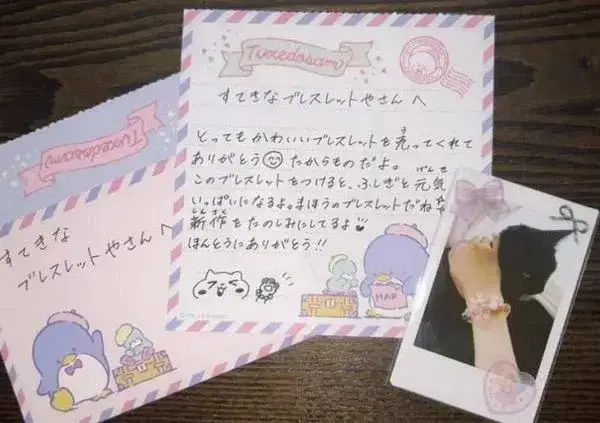 Tuxedosam
すてきなブレスレットやさんへ
とってもかわいいブレスレットを売ってくれて
ありがとう たからものだよ。
このブレスレットをつけると、ふしぎと元気
いっぱいになるよ。まほうのブレスレットだね
新作をたのしみにしてるよ
ほんとうにありがとう!!
MAP
Tuxedosam
すてきな
ブレスレットやさんへ